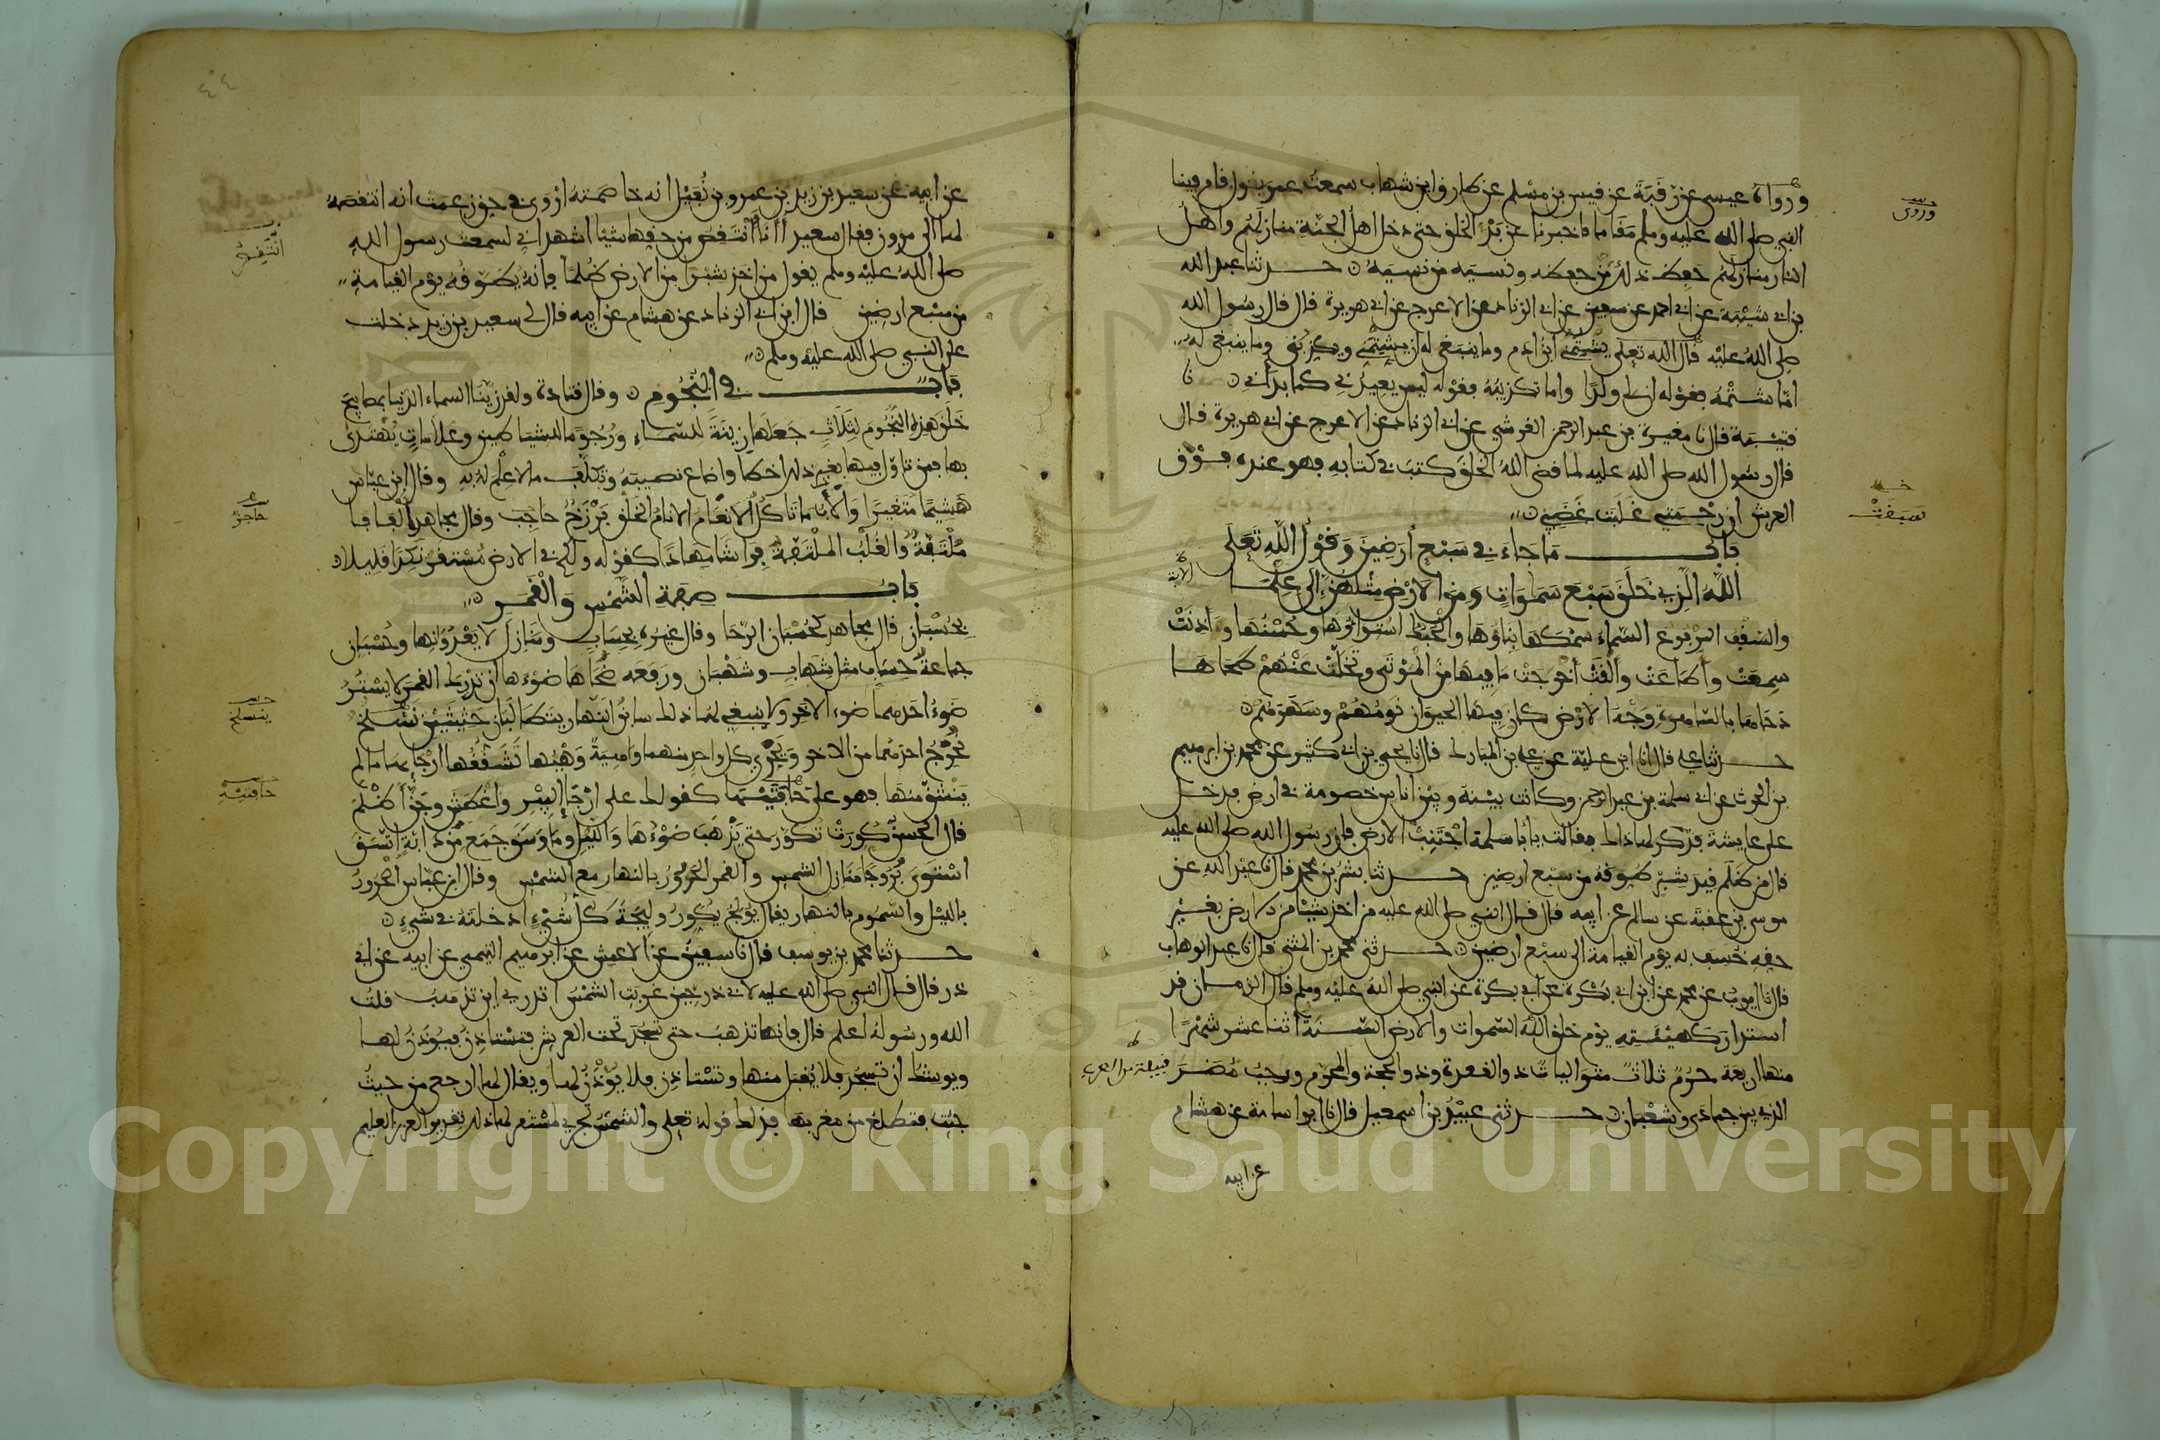 ورواه عيسى عن رقبة عن قيس بن مسلم عن طارق ابن شهاب سمعت عمر يقول قام فينا
النبي صلى الله عليه وسلم مقاما فاخبرنا عن بدء الخلق حتى دخل اهل الجنة منازلهم واهل
النار منازلهم حفظ ذلك من حفظه ونسيه من نسيه حدثنا عبد الله
بن ابي شيبة عن ابي احمد عن سفين عن ابي الزناد عن الاعرج عن ابي هريرة قال قال رسول الله
صلى الله عليه قال الله تعلى يشتمني ابن ادم وما ينبغي له ان يشتمني ويكذبني وما ينبغي له
اما شتمه فقوله ان لي ولدا واما تكذيبه فقوله ليس يعيدني كما بدأني
قتيبة قال نا مغيرة بن عبد الرحمن القرشي عن ابي الزناد عن الاعرج عن ابي هريرة قال
قال رسول الله صلى الله عليه لما قضى الله الخلق كتب في كتابه فهو عنده فوق
العرش ان رحمتي غلبت غضبي
باب ما جاء في سبع أرضين وقول الله تعلى
الله الذي خلق سبع سماوات ومن الارض مثلهن الى علما الاية
والسقف المرفوع السماء سمكها بناؤها والحبك استواؤها وحسنها وأذنت
سمعت واطاعت وألقت أخرجت ما فيها من الموتى وتخلت عنهم طحاها
دحاها بالساهرة وجه الارض كان فيها الحيوان نومهم وسهرهم
حدثنا علي قال انا ابن علية عن علي بن المبارك قال نا يحيى بن ابي كثير عن محمد بن ابرهيم
بن الحرث عن ابي سلمة بن عبد الرحمن وكانت بينه وبين اناس خصومة في ارض فدخل
على عايشة فذكر لها ذلك فقالت يا با سلمة اجتنب الارض فان رسول الله صلى الله عليه
قال من ظلم قيد شبر طوقه من سبع ارضين حدثنا بشر بن محمد قال نا عبد الله عن
موسى بن عقبة عن سالم عن ابيه قال قال النبي صلى الله عليه من اخذ شيئا من الارض بغير
حقه خسف به يوم القيامة الى سبع ارضين حدثني محمد بن المثنى قال نا عبد الوهاب
قال نا ايوب عن محمد عن ابن ابي بكرة عن ابي بكرة عن النبي صلى الله عليه وسلم قال الزمان قد
استدار كهيئته يوم خلق الله السموات والارض السنة اثنا عشر شهرا
منها اربعة حرم ثلاث متواليات ذو القعدة وذو الحجة والمحرم ورجب مضر
الذي بين جمادى وشعبان حدثني عبيد بن اسمعيل قال نا ابو اسامة عن هشام
عن ابيه
وروى
سبقت
قبيلة من العرب
٤٤
عن ابيه عن سعيد بن زيد بن عمرو بن نفيل انه خاصمته اروى في حق زعمت انه انتقصه
لها الى مروان فقال سعيد أأنا أنتقص من حقها شيئا اشهد اني لسمعت رسول الله
صلى الله عليه وسلم يقول من اخذ شبرا من الارض ظلما فانه يطوقه يوم القيامة
من سبع ارضين قال ابن ابي الزناد عن هشام عن ابيه قال لي سعيد بن زيد دخلت
على النبي صلى الله عليه وسلم
باب في النجوم وقال قتادة ولقد زينا السماء الدنيا بمصابيح
خلق هذه النجوم لثلاث جعلها زينة للسماء ورجوما للشياطين وعلامات يهتدى
بها فمن تاول فيها بغير ذلك اخطا واضاع نصيبه وتكلف ما لا علم له به وقال ابن عباس
هشيما متغيرا والأب ما تاكل الانعام الانام الخلق برزخ حاجب وقال مجاهد ألفافا
ملتفة والغلب الملتفة فراشا مهادا كقوله ولكم في الارض مستقر نكدا قليلا
باب صفة الشمس والقمر
بحسبان قال مجاهد كحسبان الرحا وقال غيره بحساب ومنازل لا يعدوانها وحسبان
جماعة حساب مثل شهاب وشهبان ورفعه ضحاها ضوءها ان تدرك القمر لا يستر
ضوء احدهما ضوء الاخر ولا ينبغي لهما ذلك سابق النهار يتطالبان حثيثين نسلخ
نخرج احدهما من الاخر ويجري كل واحد منهما واهية وهيها تشققها ارجائها ما لم
ينشق منها فهو على حافتيها كقولك على ارجاء البير واغطش وجن أظلم
قال الحسن كورت تكور حتى يذهب ضوءها والليل وما وسق جمع من دابة اتسق
استوى بروجا منازل الشمس والقمر الحرور بالنهار مع الشمس وقال ابن عباس الحرور
بالليل والسموم بالنهار يقال يولج يكور وليجة كل شيء ادخلته في شيء
حدثنا محمد بن يوسف قال نا سفين عن الاعمش عن ابرهيم التيمي عن ابيه عن ابي
ذر قال قال النبي صلى الله عليه لابي ذر حين غربت الشمس اتدري اين تذهب قلت
الله ورسوله اعلم قال فانها تذهب حتى تسجد تحت العرش فتستاذن فيؤذن لها
ويوشك أن تسجد فلا يقبل منها وتستاذن فلا يؤذن لها ويقال لها ارجعي من حيث
جئت فتطلع من مغربها فذلك قوله تعلى والشمس تجري لمستقر لها ذلك تقدير العزيز العليم
انتقص
حاجز
ينسلخ
حافتيه
Copyright © King Saud University